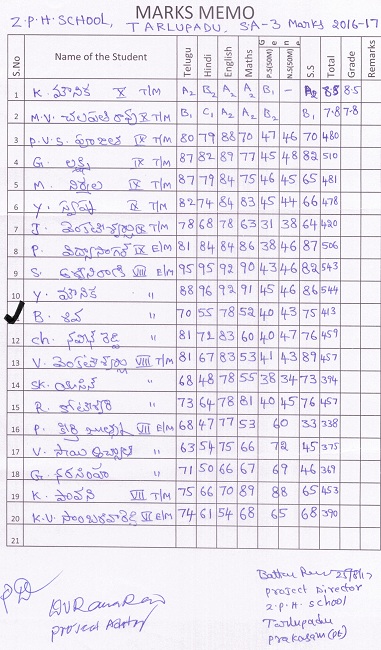 MARKS MEMO
Z.P.H. SCHOOL, TARLUPADU, SA-3 Marks 2016-17
S.No Name of the Student Telugu Hindi English Maths Gen P.S(50M) N.S(50M) S.S Total Grade Remarks
1 K. మౌనిక X T/M A2 B2 A2 A2 B1 - A2 8.8 8.5
2 M.V. X T/M B1 C1 A2 A2 B2 B1 7.8 7.8
3 P.V.S. IX T/M 80 79 88 70 47 46 70 480
4 G. లక్ష్మి IX T/M 87 82 89 77 45 48 82 510
5 M. నిర్మల IX T/M 87 79 84 75 46 45 65 481
6 Y. స్వప్న IX T/M 82 74 84 83 45 44 66 478
7 J. IX T/M 78 68 78 63 31 38 64 420
8 P. IX E/M 81 84 84 86 38 46 87 506
9 S. VIII E/M 95 95 92 90 43 46 82 543
10 Y. మౌనిక " 88 96 92 91 45 46 86 544
B. శివ " 70 55 78 52 40 43 75 413
12 Ch. నవీన్ రెడ్డి " 81 72 83 60 40 47 76 459
13 V. VIII T/M 81 67 83 53 41 43 89 457
14 SK. " 68 48 78 55 38 34 73 394
15 R. " 73 64 78 81 40 45 76 457
16 P. VII E/M 68 47 77 53 60 33 338
17 V. సాయి " 63 54 75 66 72 45 375
18 G. నరసింహ " 71 50 66 67 69 46 369
19 K. పావని VII T/M 75 66 70 89 88 65 453
20 K.V. VI E/M 74 61 54 68 65 68 390
21
25/8/17
Project Director
Z.P.H. School
Tarlupadu
Prakasam (Dt)